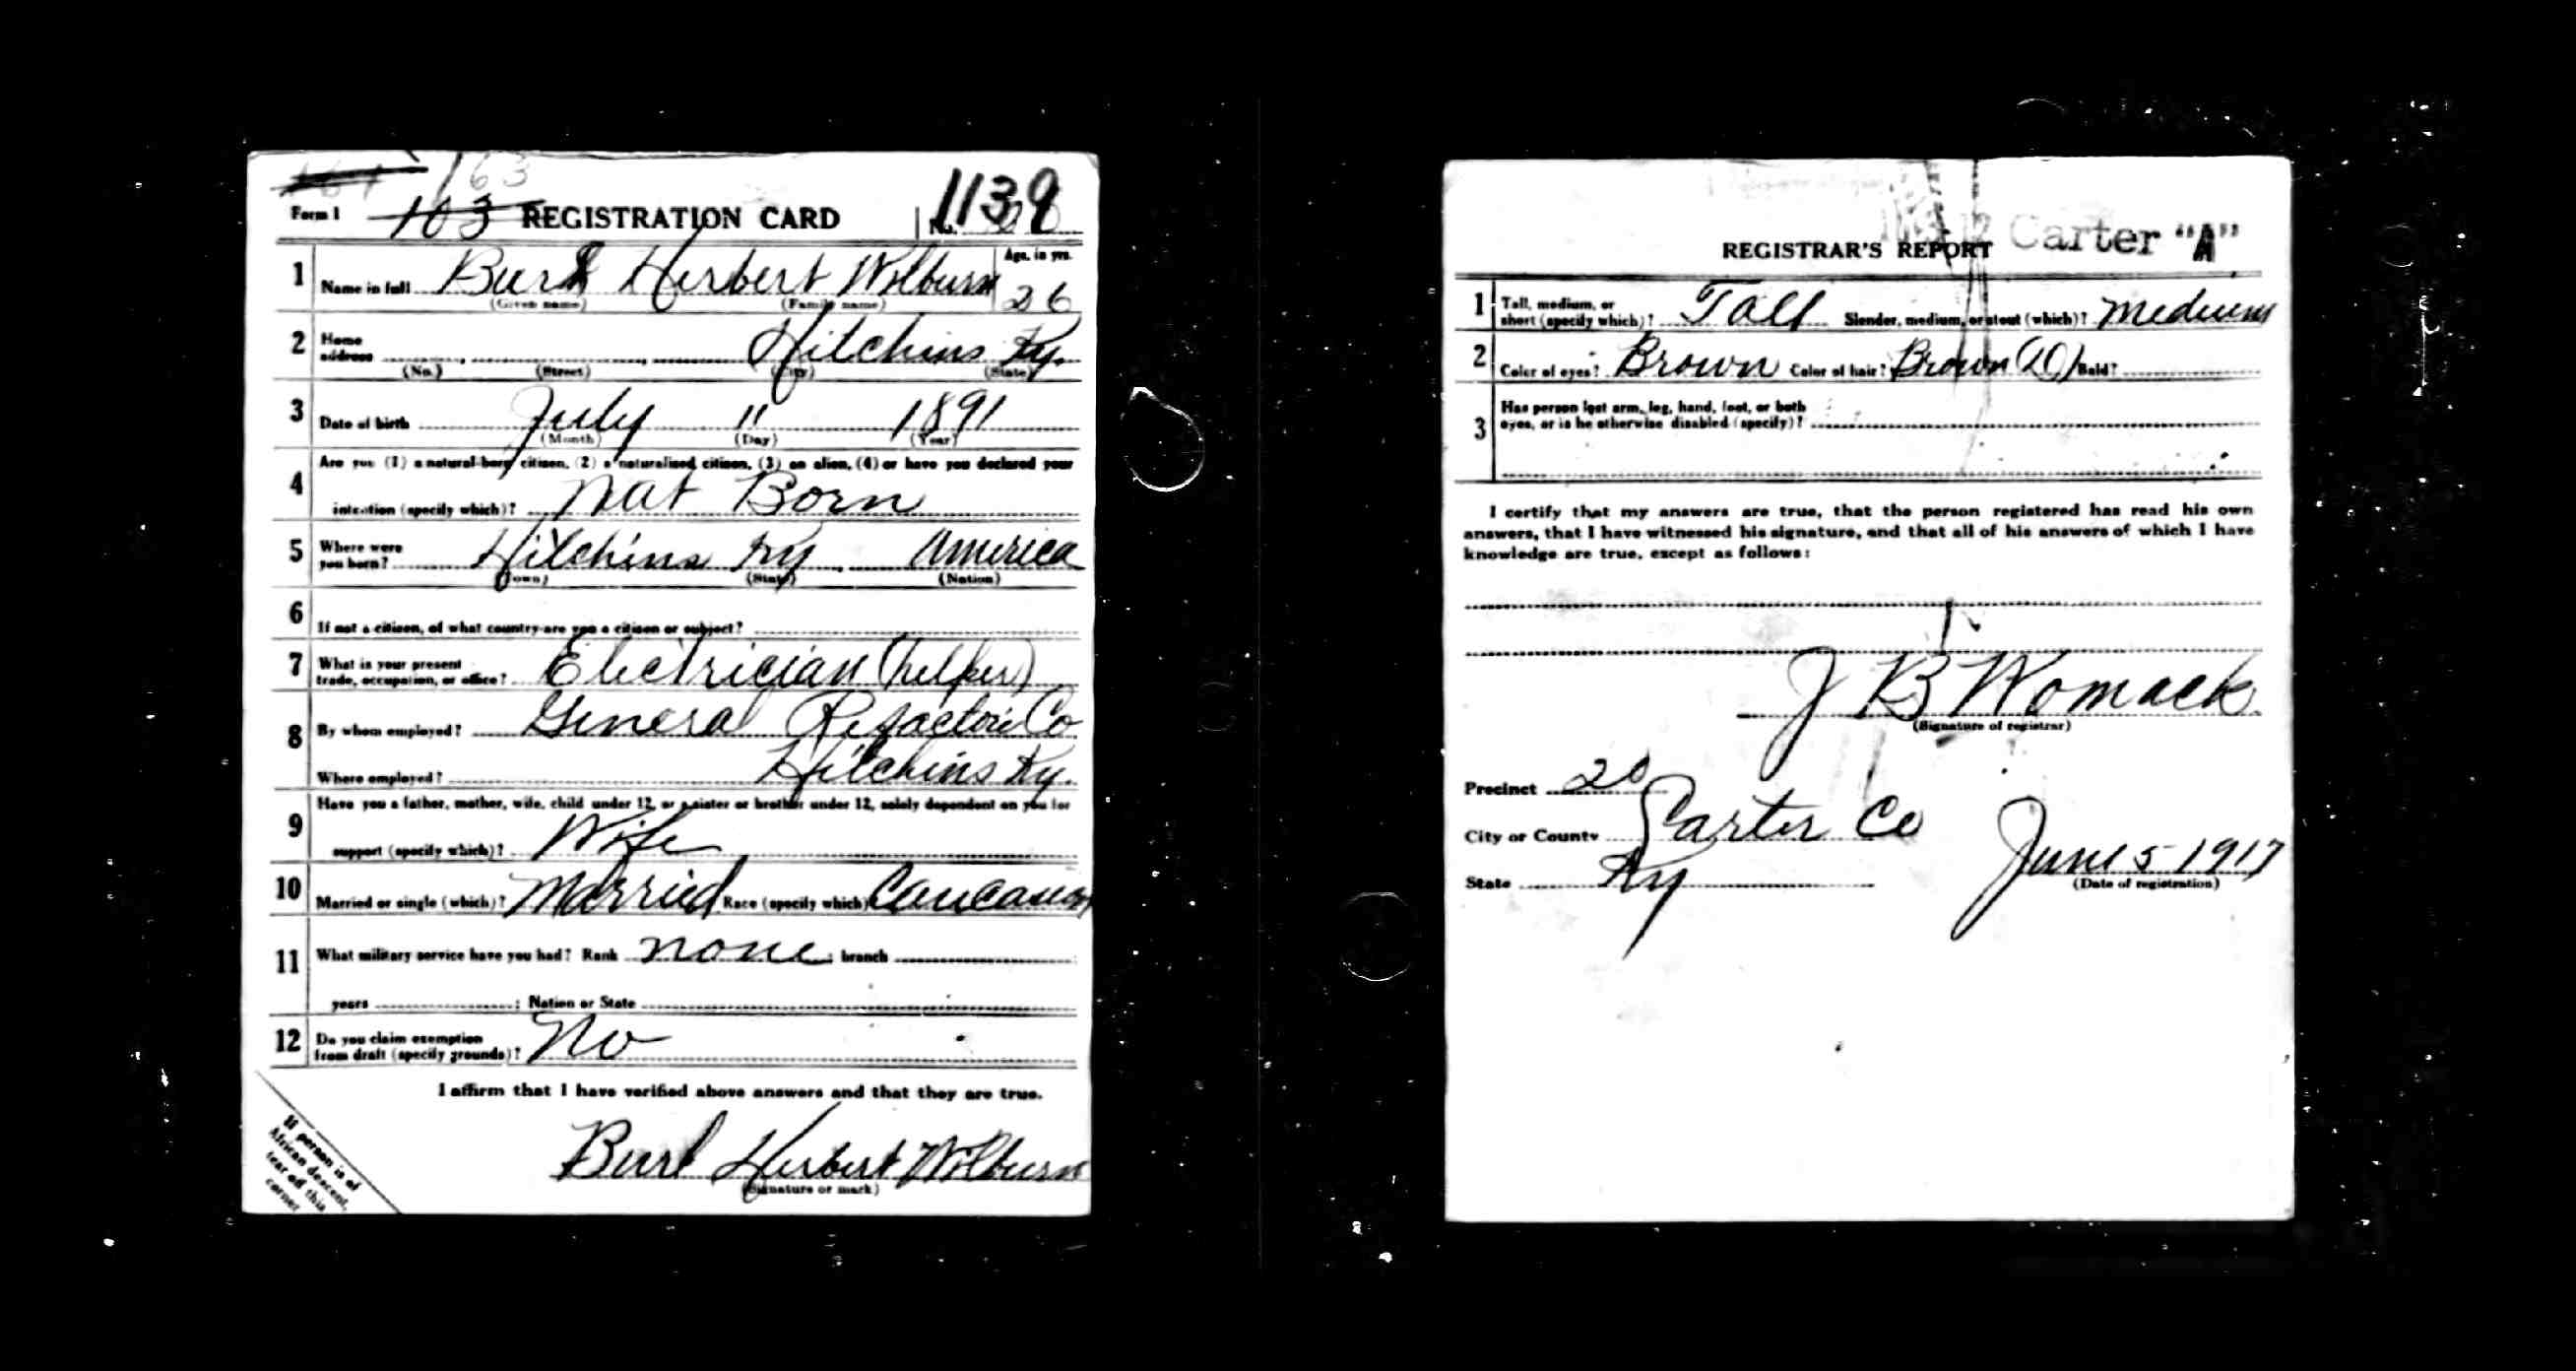 163
Form 1 103 REGISTRATION CARD No. 1139
1 Name in full Burl Herbert Wilburn Age, in yrs. 26
(Given name) (Family name)
2 Home address Hitchins Ky.
(No.) (Street) (City) (State)
3 Date of birth July 11 1891
(Month) (Day) (Year)
Are you (1) a natural-born citizen, (2) a naturalized citizen, (3) an alien, (4) or have you declared your
4 intention (specify which)? Nat Born
5 Where were you born? Hitchins Ky America
(Town) (State) (Nation)
6 If not a citizen, of what country are you a citizen or subject?
7 What is your present trade, occupation, or office? Electrician (helper)
8 By whom employed? General Refactorie Co
Where employed? Hitchins Ky.
Have you a father, mother, wife, child under 12, or a sister or brother under 12, solely dependent on you for
9 support (specify which)? Wife
10 Married or single (which)? Married Race (specify which)? Caucasian
11 What military service have you had? Rank none ; branch
years ; Nation or State
12 Do you claim exemption from draft (specify grounds)? No
I affirm that I have verified above answers and that they are true.
Burl Herbert Wilburn
(Signature or mark)
If person is of
African descent,
tear off this
corner
REGISTRAR'S REPORT Carter "A"
1 Tall, medium, or short (specify which)? Tall Slender, medium, or stout (which)? medium
2 Color of eyes? Brown Color of hair? Brown (D) Bald?
3 Has person lost arm, leg, hand, foot, or both
eyes, or is he otherwise disabled (specify)?
I certify that my answers are true, that the person registered has read his own
answers, that I have witnessed his signature, and that all of his answers of which I have
knowledge are true, except as follows:
J B Womack
(Signature of registrar)
Precinct 20
City or County Carter Co
State Ky June 5 1917
(Date of registration)